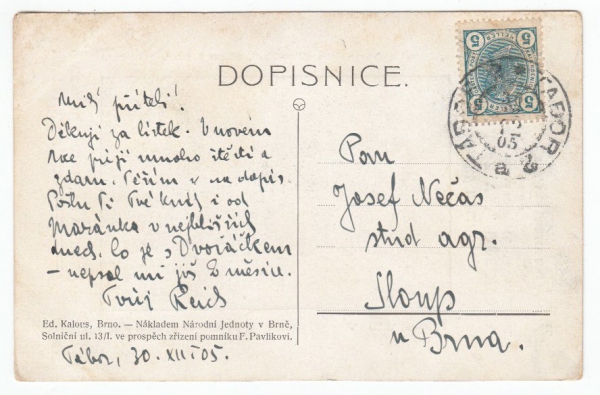 DOPISNICE.
Milý příteli!
Děkuji za lístek. V novém
roce přeji mnoho štěstí a
zdaru. Těším se na dopis.
Pošlu Ti Tvé knihy i od
Mařánka v nejbližších
dnech. Co je s Dvořáčkem
– nepsal mi již 2 měsíce.
Tvůj
Ed. Kalous, Brno. — Nákladem Národní Jednoty v Brně,
Solniční ul. 13/I. ve prospěch zřízení pomníku F. Pavlíkovi.
Tábor, 30. XII 05.
5 5
5 5
TÁBOR TABOR
05
a 2
Pan
Josef Nečas
stud agr.
Sloup
u Brna.